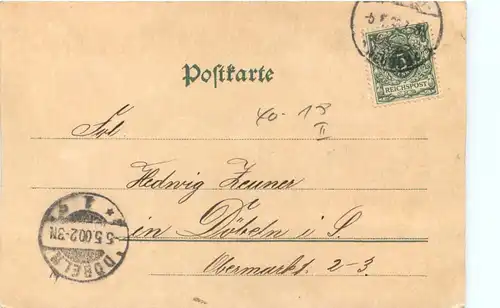 5
REICHSPOST
Postkarte
40-18
II
Frl
Hedwig Zeuner
in Döbeln i. S.
Obermarkt 2-3.
* 1 c
5.5.00.2-3N
DÖBELN